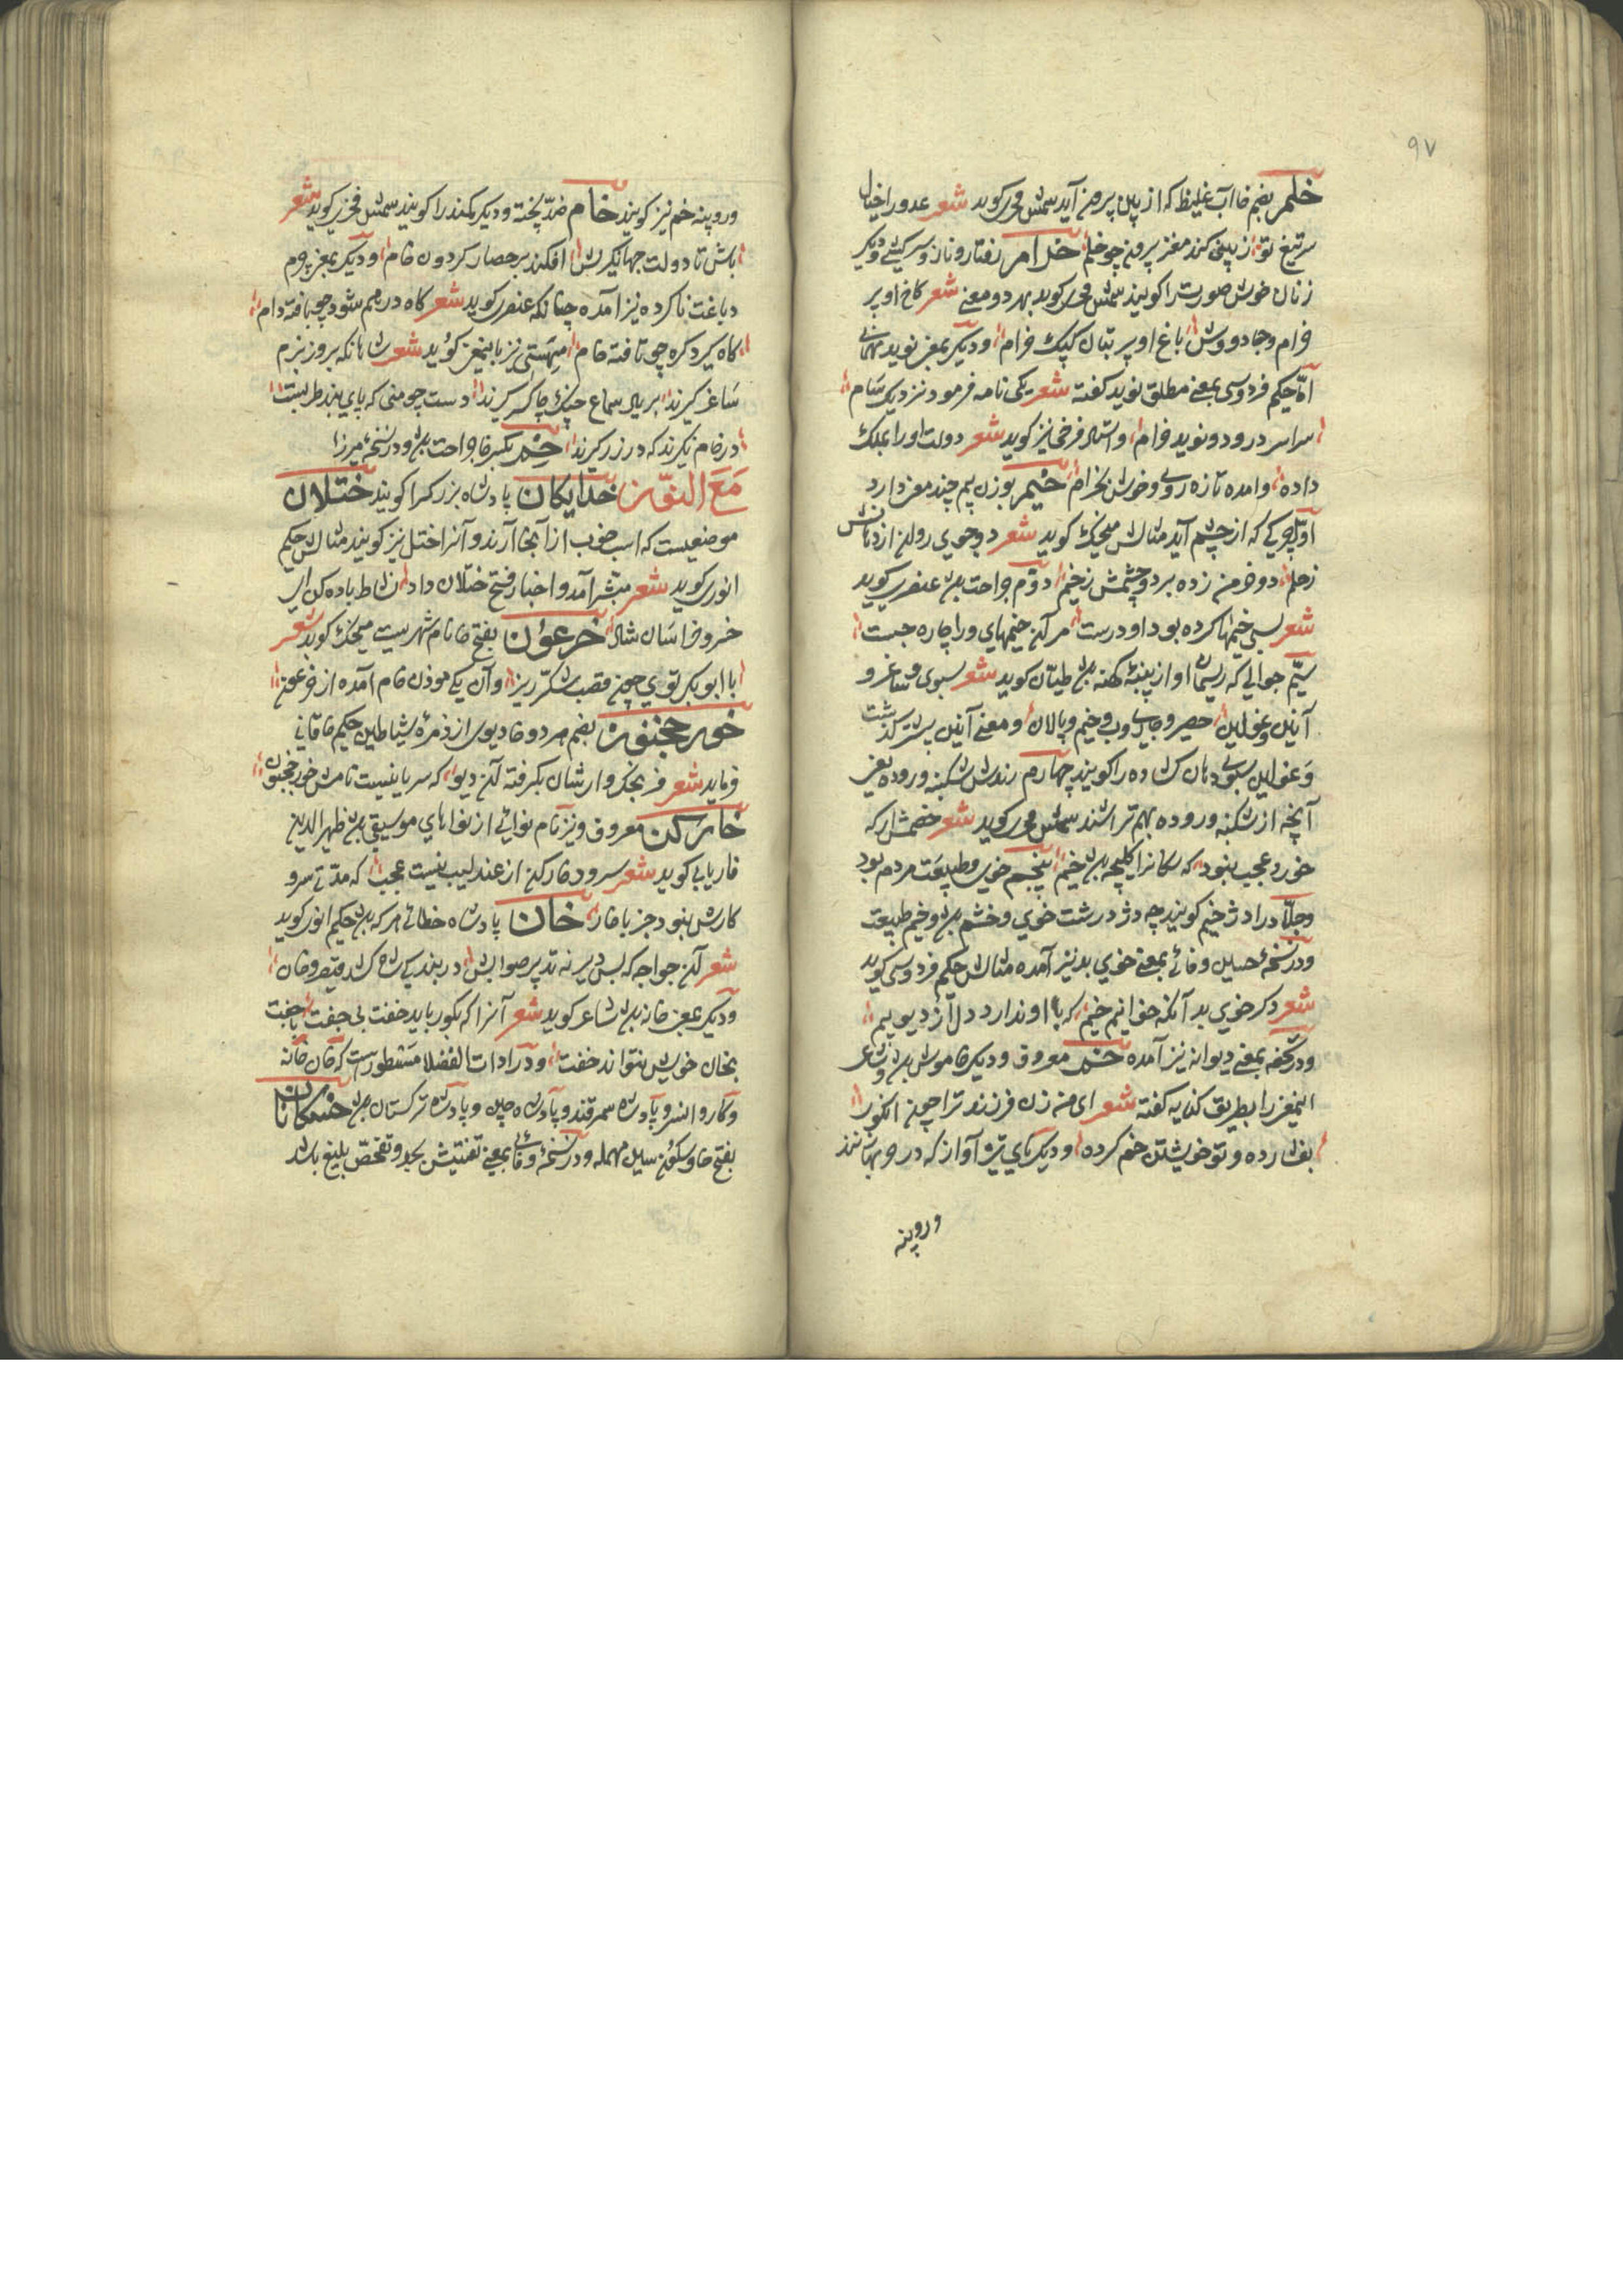 ۹۷
خلم بضم خا آب غلیظ که از بینی برون آید شمس فخری کوید شعر عدو را خیال
سر تیغ تو از بینی کند مغز برون چو خلم خرام رفتار و ناز و سرکشی و دیکر
زنان خوش صورت را کویند شمس فخری کوید بهر دو معنی شعر کاخ او پر
خرام و جادو وش باغ او پر بتان کبک خرام و دیکر بمعنی نوید مهمانی
اما حکیم فردوسی بمعنی مطلق نوید کفته شعر یکی نامه فرمود نزدیک سام
سراسر درود و نوید و خرام و استاد فرخی نیز کوید شعر دولت او را بملک
داده و آمده تازه روی و خوش بخرام خیم بوزن بیم چند معنی دارد
اول چرکی که از چشم آید مثالش منجیک کوید شعر دو جوی روان از دهانش
ز خلم دو خرمن زده بر دو چشمش ز خیم دوم جراحت بود عنصری کوید
شعر بسی خیمها کرده بود او درست مر آن خیمهای ورا چاره جست
سیم جوالی که ریسمان او از پنبهٔ کهنه بود طیان کوید شعر سبوی و ساغر و
آنین و غولین حصیر و جای روب و خیم و پالان و معنی آنین بیشتر کذشت
و غولین سبوی دهان کشاده را کویند چهارم رندش شکنبه و روده یعنی
آنچه از شکنبه و روده بهم تراشند شمس فخری کوید شعر خصمش ار که
خورد عجب نبود که سکانرا کلیچه بود خیم پنجم خوی و طبیعت مردم بود
و جلاد را دژخیم کویند چه دژ درشت خوی و خشم بود و خیم طبیعت
و در نسخهٔ حسین وفائی بمعنی خوی بد نیز آمده مثالش حکیم فردوسی کوید
شعر دکر خوی بد آنکه خوانیم خیم که با او ندارد دل از دیو بیم
و در تحفه بمعنی دیوانه نیز آمده خم معروف و دیکر خاموش بود و شاعر
اینمعنی را بطریق کنایه کفته شعر ای من زن فرزند ترا چون انکور
بفشارده و تو خویشتن خم کرده و دیکر نای تیز آواز که در حربها نوازند
و رویینه
و رویینه خم نیز کویند خام ضد پخته و دیکر کمند را کویند شمس فخری کوید شعر
باش تا دولت جهانکیرش افکند بر حصار کردون خام و دیکر بمعنی چرم
دباغت ناکرده نیز آمده چنانکه عنصری کوید شعر کاه در هم شود چو بافته دام
کاه کیرد کره چو تافته خام مهستی نیز باینمعنی کوید شعر شاهانکه بروز بزم
ساغر کیرند بر یاد سماع چنک چاکر کیرند دست چو منی که پای بند طربست
در خام نکیرند که در زر کیرند خم بکسر خا جراحت بود و در نسخهٔ میرزا
مع النون خدایکان پادشاه بزرک را کویند ختلان
موضعیست که اسب خوب از آنجا آرند و آنرا ختل نیز کویند مثالش حکیم
انوری کوید شعر مبشر آمد و اخبار فتح ختلان داد نشاط باده کن ای
خسرو خراسان شاد خرعون بفتح خا نام شهریست منجیک کوید شعر
با ابوبکر توی چون قصب شکر ریز وان یکی موذن خام آمده از خرعون
خورخجیون بضم هر دو خا دیوی از زمرهٔ شیاطین حکیم خاقانی
فرماید شعر فرنجک وارشان بکرفته آن دیو که سریانیست نامش خورخجیون
خارکن معروف و نیز نام نوائی از نواهای موسیقی بود ظهیر الدین
فاریابی کوید شعر سرود خارکن از عندلیب نیست عجب که مدتی سرو
کارش نبود جز با خار خان پادشاه خطائی هر که بود حکیم انوری کوید
شعر آن خواجه که بس دیر نه تدبیر صوابش در بندکی شاه کشد قیصر و خان
و دیکر بمعنی خانه بود شاعر کوید شعر آنرا که بکور باید خفت بی جفت با جفت
بخان خویش نتواند خفت و در ادات الفضلا مسطورست که خان خانه
و کاروانسرا و پادشاه سمرقند و پادشاه چین و پادشاه ترکستان بود خستکانان
بفتح خا و سکون سین مهمله و در نسخهٔ وفائی بمعنی تفتیش بجد و تفحص بلیغ باشد